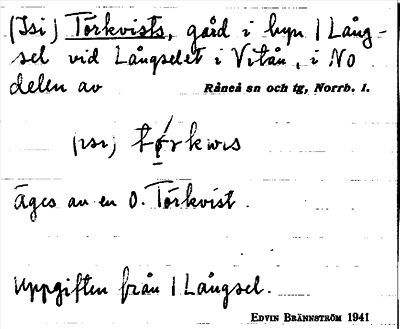 (Isi) Törkvists, gård i byn 1 Lång-
sel vid Långselet i Vitån, i NO
delen av Råneå sn och tg, Norrb. l.
Äges av en O. Törkvist.
Uppgiften från 1 Långsel.
EDVIN BRÄNNSTRÖM 1941